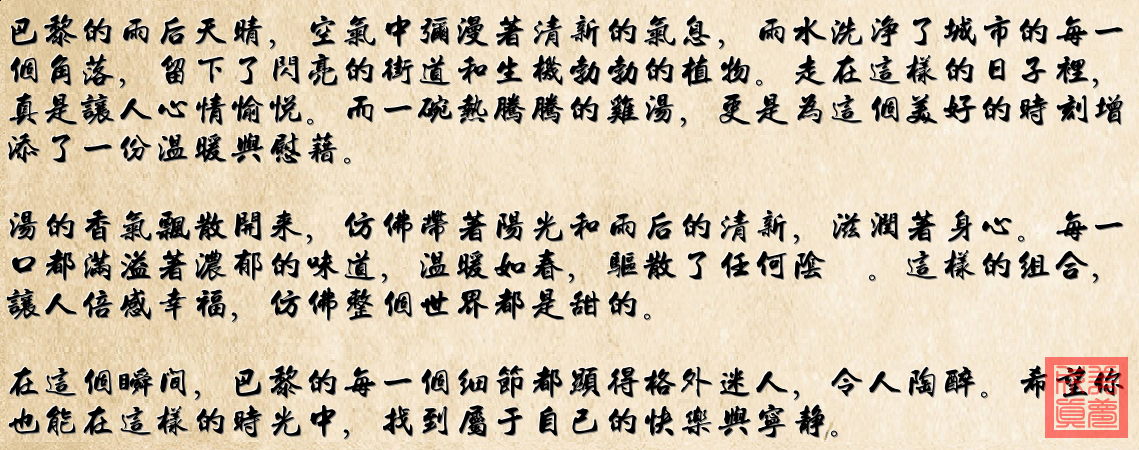 巴黎的雨后天晴，空氣中彌漫著清新的氣息，雨水洗净了城市的每一
個角落，留下了閃亮的街道和生機勃勃的植物。走在這樣的日子裡，
真是讓人心情愉悦。而一碗熱騰騰的雞湯，更是為這個美好的時刻增
添了一份温暖與慰藉。
湯的香氣飄散開來，仿佛帶著陽光和雨后的清新，滋潤著身心。每一
口都滿溢著濃郁的味道，温暖如春，驅散了任何陰　。這樣的组合，
讓人倍感幸福，仿佛整個世界都是甜的。
在這個瞬间，巴黎的每一個细節都顯得格外迷人，令人陶醉。希望你
也能在這樣的時光中，找到屬于自己的快樂與寧静。